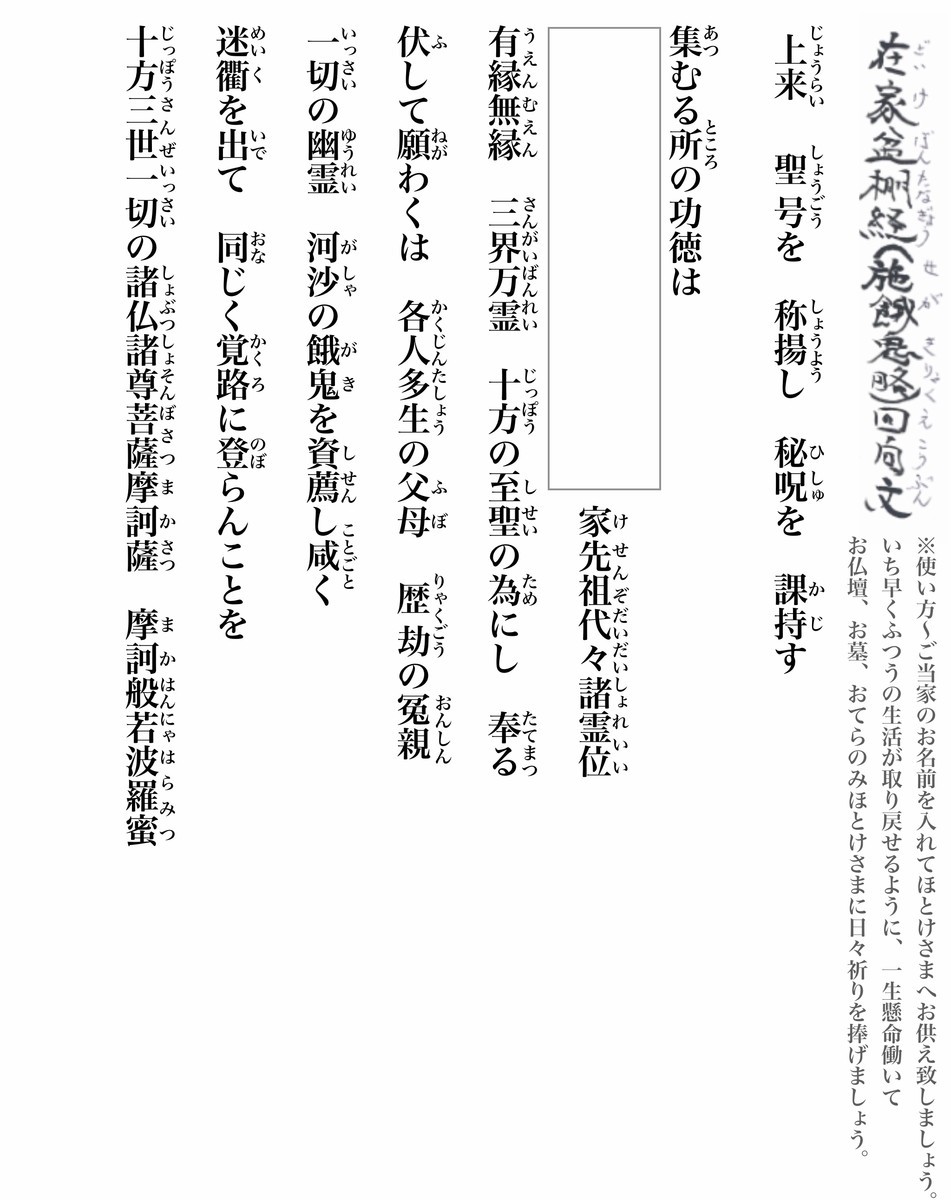 在家盆棚経(施餓鬼略)回向文
※使い方～ご当家のお名前を入れてほとけさまへお供え致しましょう。
いち早くふつうの生活が取り戻せるように、一生懸命働いて
お仏壇、お墓、おてらのみほとけさまに日々祈りを捧げましょう。
上来　聖号を　称揚し　秘呪を　課持す
集むる所の功徳は
家先祖代々諸霊位
有縁無縁　三界万霊　十方の至聖の為にし　奉る
伏して願わくは　各人多生の父母　歴劫の冤親
一切の幽霊　河沙の餓鬼を資薦し咸く
迷衢を出て　同じく覚路に登らんことを
十方三世一切の諸仏諸尊菩薩摩訶薩　摩訶般若波羅蜜